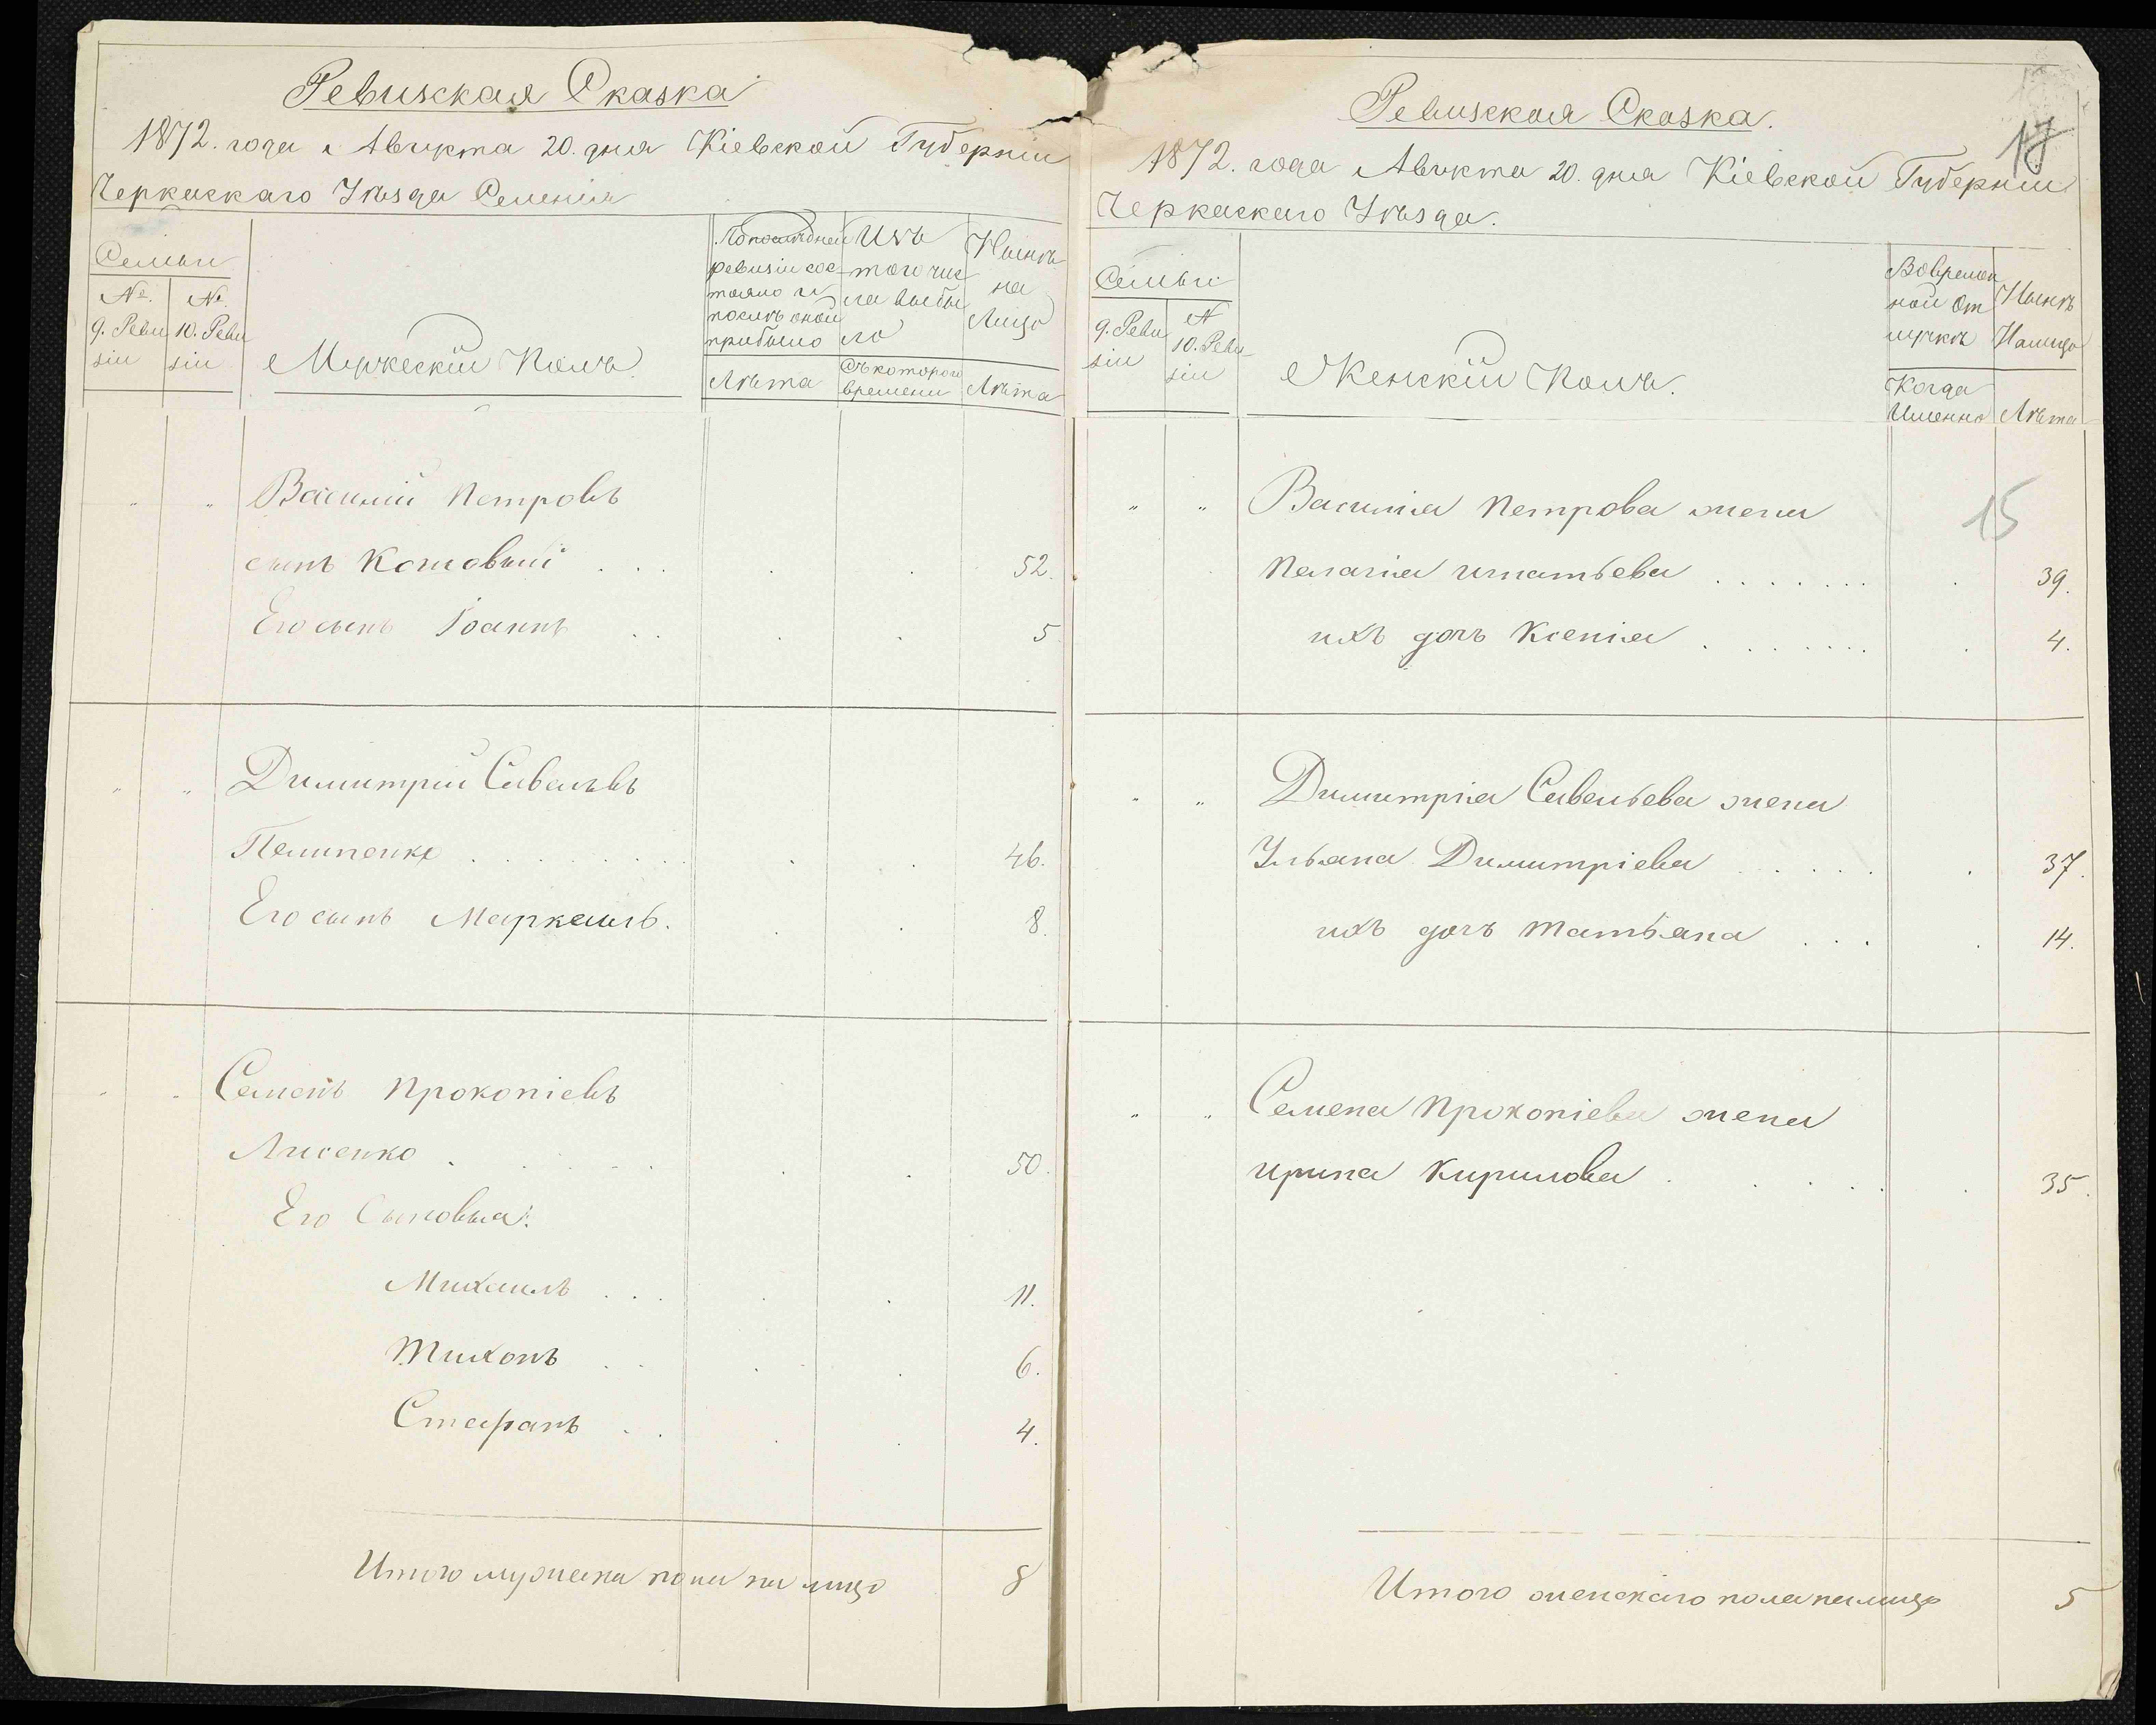 Ревизская Сказка
1872. года Августа 20. дня Кіевской Губерніи
Черкаскаго Уѣзда Селенія
Семьи
№.
9. Реви
зіи
№.
10. Реви
зіи
Мужескій Полъ.
По последней
ревизіи сос-
тояло и
послѣ оной
прибыло
Лѣта
Изъ
того чис
ла выбы
ло
Съ котораго
времени
Нынѣ
на
Лицо
Лѣта
" " Василій Петровъ
сынъ Кошовый . . . 52.
Его сынъ Іоаннъ . . 5
" " Димитрій Савельевъ
Пелипенко . . . 46.
Его сынъ Маркелъ. 8.
" " Семенъ Прокопіевъ
Лисенко . . . . 50.
Его Сыновья:
Михаилъ . . . 11.
Тихонъ . . 6.
Стефанъ . . 4.
Итого мужеска пола на лицо 8
Ревизская Сказка.
17
1872. года Августа 20. дня Кіевской Губерніи
Черкаскаго Уѣзда.
Семьи
9. Реви
зіи
№
10. Реви-
зіи
Женскій Полъ.
Во времен
ной От
лучкѣ
Когда
Именно
Нынѣ
Налицо
Лѣта
" " Василія Петрова жена
15
Пелагія игнатьева . . . . . . . 39.
ихъ дочь Ксенія . . . . . . . 4.
" " Димитрія Савельева жена
Ульяна Димитріева . . . . . 37.
ихъ дочь Татьяна . . . 14.
" " Семена Прокопіева жена
ирина Кирилова . . . . . 35.
Итого женскаго пола налицо 5